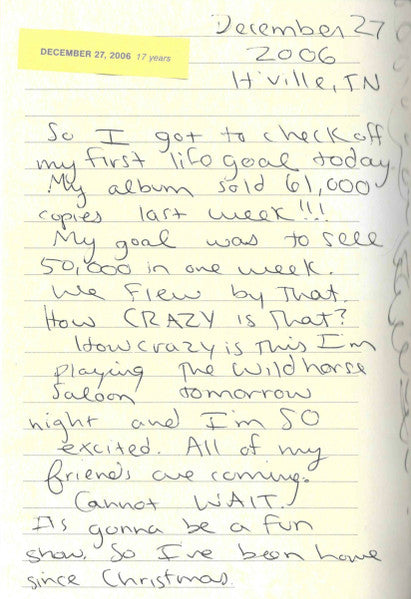 DECEMBER 27, 2006 17 years
December 27
2006
H'ville, TN
So I got to check off
my first life goal today.
My album sold 61,000
copies last week!!!
My goal was to sell
50,000 in one week.
We flew by that.
How CRAZY is that?
How crazy is this I'm
playing the wildhorse
Saloon tomorrow
night and I'm SO
excited. All of my
friends are coming.
Cannot WAIT.
It's gonna be a fun
show. So I've been home
since Christmas.